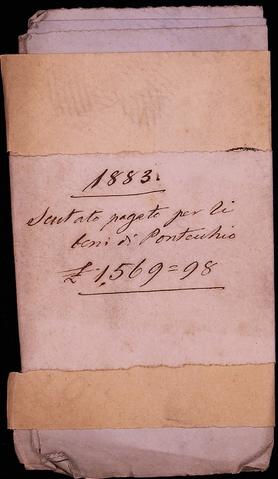 1883.
Scutato pagato per li
beni di Pontecchio
£ 1,569=98